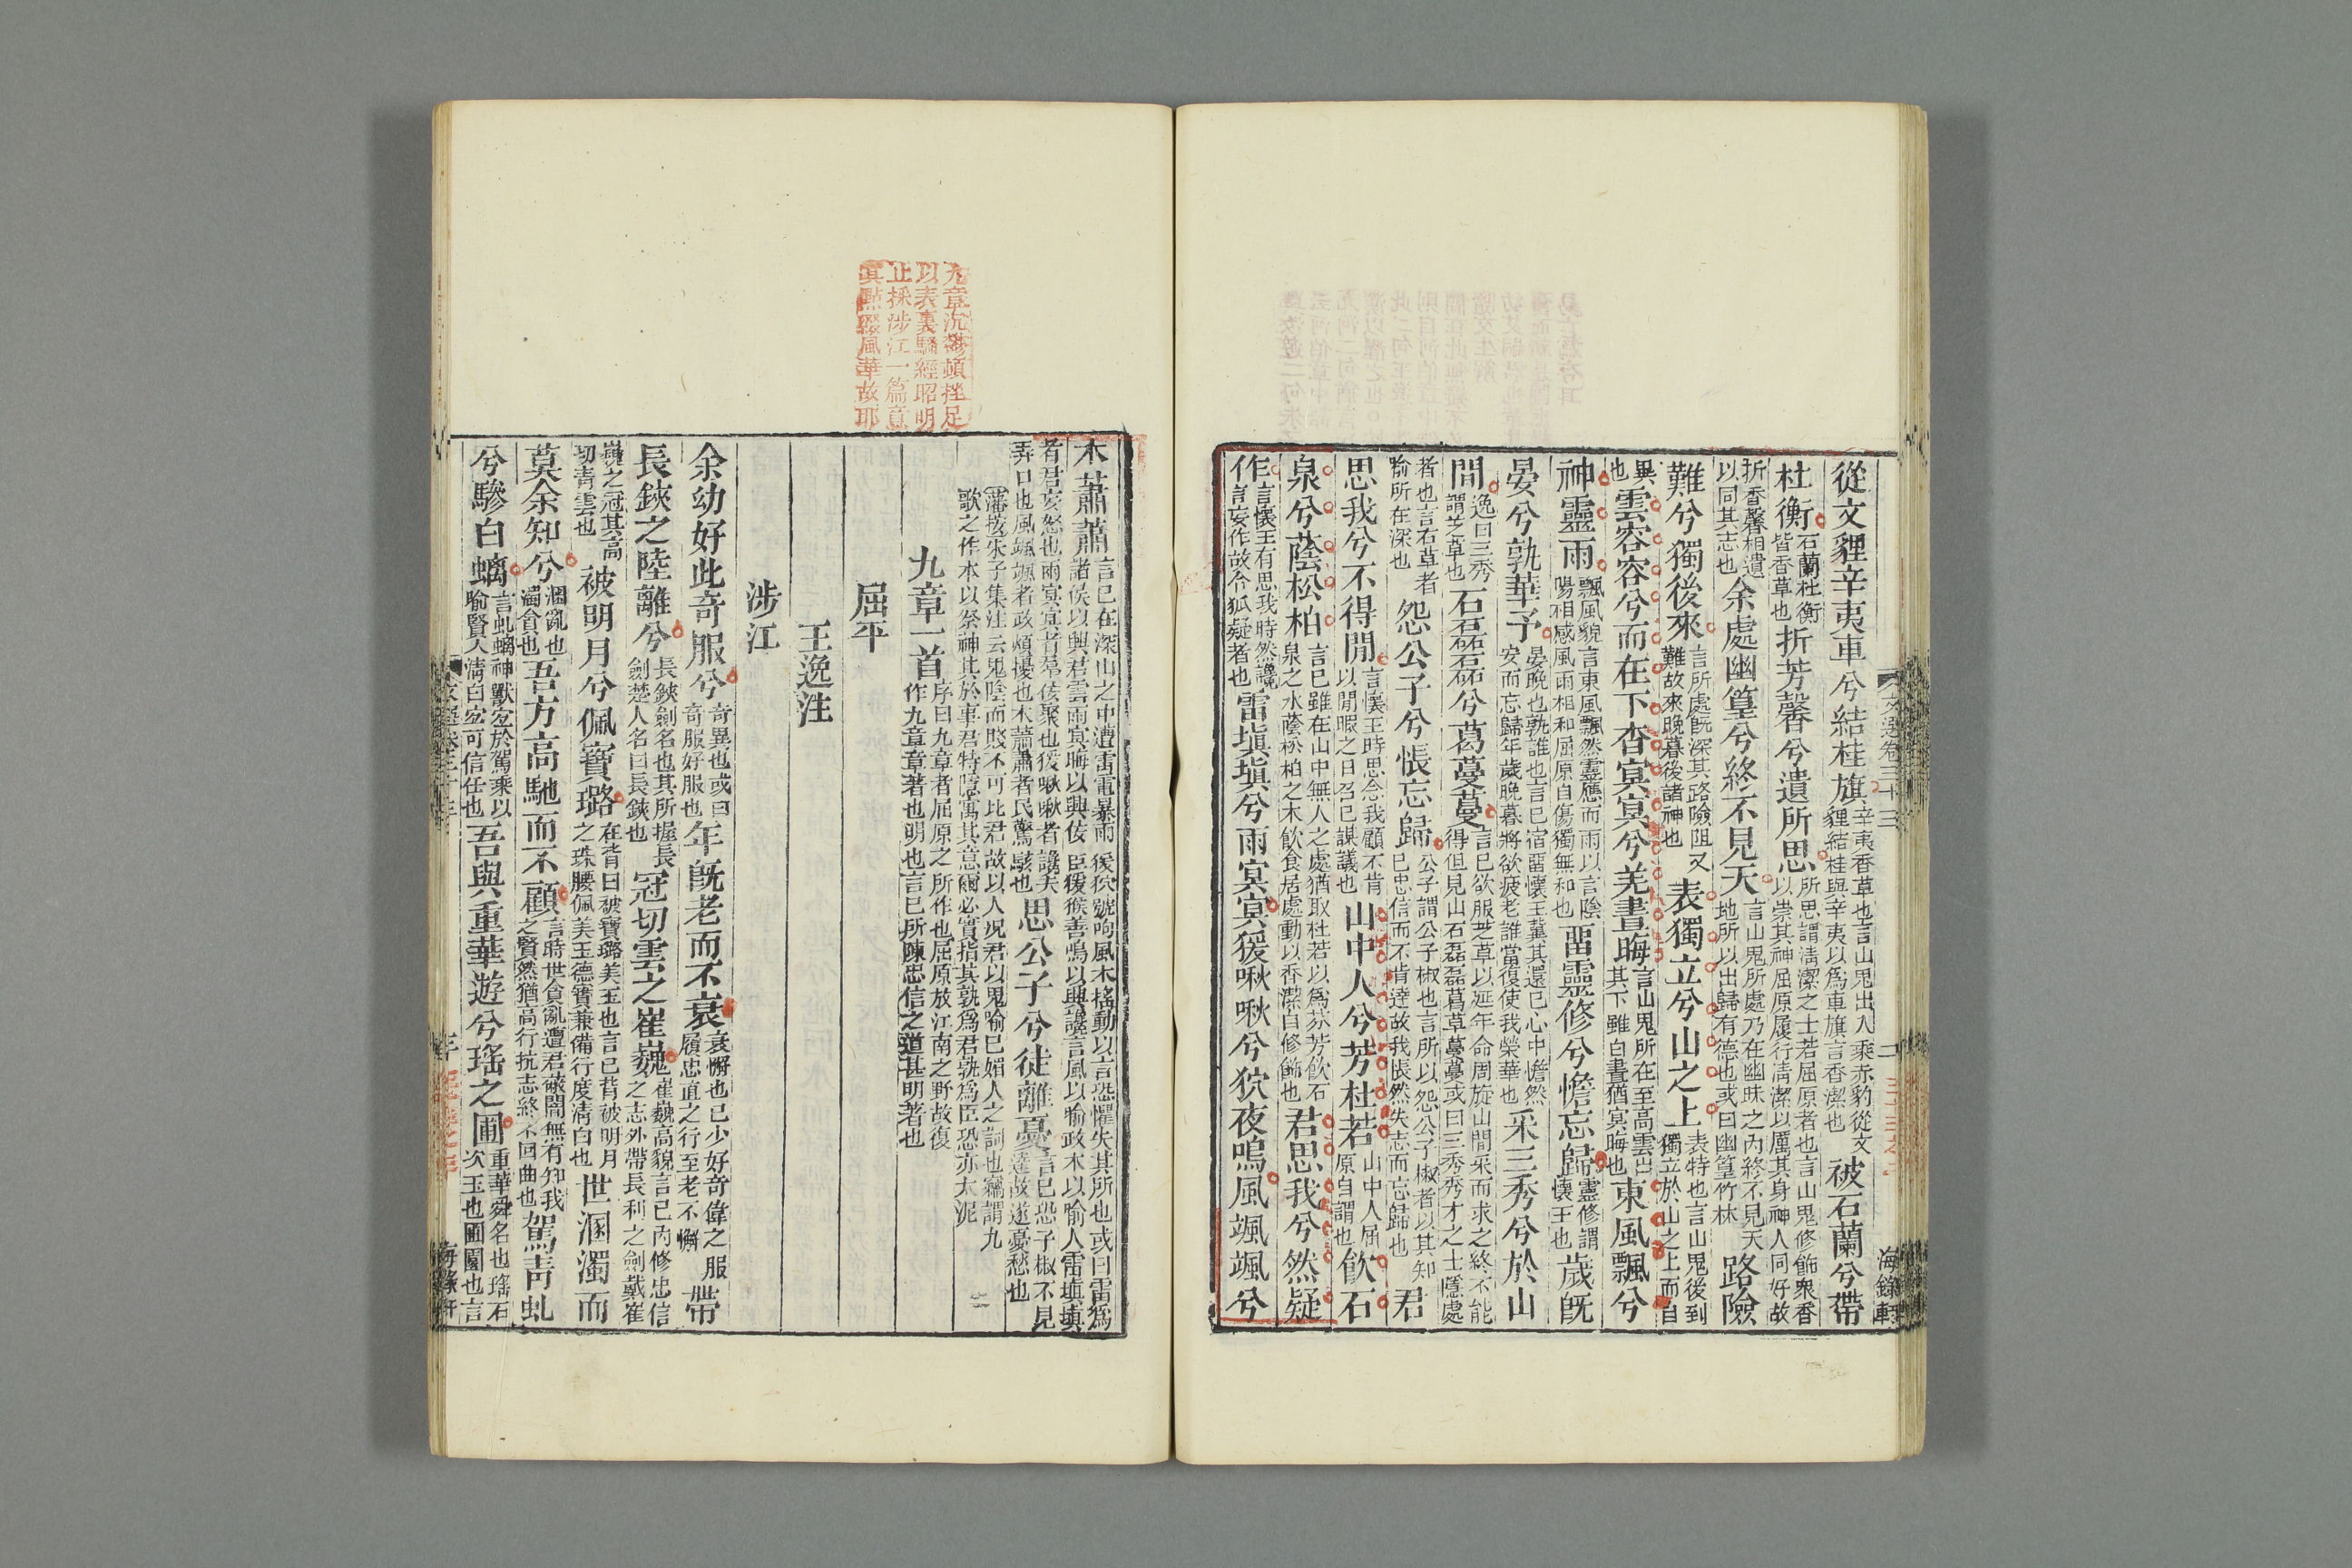 文選卷三十三 二 海錄軒
從文貍辛夷車兮結桂旗辛夷香草也言山鬼出入乘赤豹從文貍結桂與辛夷以爲車旗言香潔也被石蘭兮帶
杜衡石蘭杜衡皆香草也折芳馨兮遺所思所思謂淸潔之士若屈原者也言山鬼修飾衆香以崇其神屈原履行淸潔以厲其身神人同好故
折香馨相遺以同其志也余處幽篁兮終不見天言山鬼所處乃在幽昧之內終不見天地所以出歸有德也或曰幽篁竹林路險
難兮獨後來言所處旣深其路險阻又難故來晚暮後諸神也表獨立兮山之上表特也言山鬼後到獨立於山之上而自
異也雲容容兮而在下杳冥冥兮羌晝晦言山鬼所在至高雲出其下雖白晝猶冥晦也東風飄兮
神靈雨飄風貌言東風飄然靈應而雨以言陰陽相感風雨相和屈原自傷獨無和也畱靈修兮憺忘歸靈修謂懷王也歲旣
晏兮孰華予晏晚也孰誰也言已宿畱懷王冀其還已心中憺然安而忘歸年歲晚暮將欲疲老誰當復使我榮華也采三秀兮於山
間逸曰三秀謂芝草也石磊磊兮葛蔓蔓言已欲服芝草以延年命周旋山間采而求之終不能得但見山石磊磊葛草蔓蔓或曰三秀秀才之士隱處
者也言石草者喻所在深也怨公子兮悵忘歸公子謂公子椒也言所以怨公子椒者以其知已忠信而不肯達故我悵然失志而忘歸也君
思我兮不得閒言懷王時思念我顧不肯以閒暇之日召已謀議也山中人兮芳杜若山中人屈原自謂也飮石
泉兮蔭松柏言已雖在山中無人之處猶取杜若以爲芬芳飮石泉之水蔭松柏之木飮食居處動以香潔自修飾也君思我兮然疑
作言懷王有思我時然讒言妄作故令狐疑者也雷塡塡兮雨冥冥猨啾啾兮狖夜鳴風颯颯兮
九章沉鬱頓挫足
以表裏騷經昭明
止採涉江一篇意
其點綴風華故耶
木蕭蕭言已在深山之中遭雷電暴雨猨狖號呴風木搖動以言恐懼失其所也或曰雷爲諸侯以興君雲雨冥晦以興佞臣猨猴善鳴以興讒言風以喻政木以喻人雷塡塡
者君妄怒也雨冥冥者羣佞聚也猨啾啾者讒夫弄口也風颯颯者政煩擾也木蕭蕭者民驚駭也思公子兮徒離憂言已恐子椒不見達故遂憂愁也
藩按朱子集注云鬼陰而賤不可比君故以人况君以鬼喻已媚人之詞也竊謂九歌之作本以祭神其於事君特隱寓其意爾必實指其孰爲君孰爲臣恐亦太泥
九章一首序曰九章者屈原之所作也屈原放江南之野故復作九章章著也明也言已所陳忠信之道甚明著也
屈平
王逸注
涉江
余幼好此奇服兮奇異也或曰奇服好服也年旣老而不衰衰懈也已少好奇偉之服履忠直之行至老不懈帶
長鋏之陸離兮長鋏劍名也其所握長劍楚人名曰長鋏也冠切雲之崔巍崔巍高貌言已內修忠信之志外帶長利之劍戴崔
巍之冠其高切靑雲也被明月兮佩寶璐在背曰被寶璐美玉也言已背被明月之珠腰佩美玉德寶兼備行度淸白也世溷濁而
莫余知兮溷亂也濁貪也吾方高馳而不顧言時世貪亂遭君蔽闇無有知我之賢然猶高行抗志終不回曲也駕靑虬
兮驂白螭言虬螭神獸宜於駕乘以喻賢人淸白宜可信任也吾與重華遊兮瑤之圃重華舜名也瑤石次玉也圃園也言